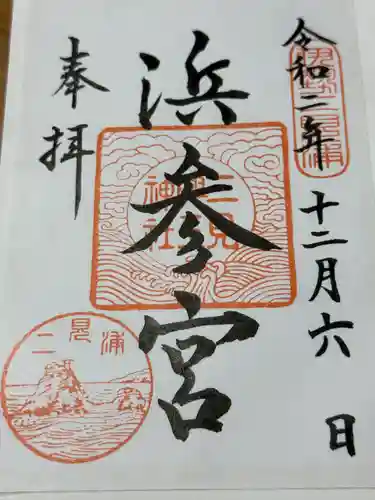 令和二年 十二月六日
浜参宮
奉拝
二見興玉神社
二見浦